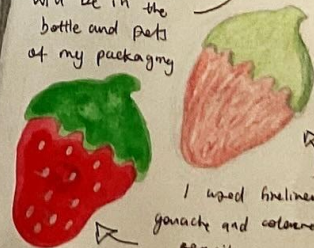 will be in the
bottle and pots
of my packaging
I used fineliner
gouache and coloured